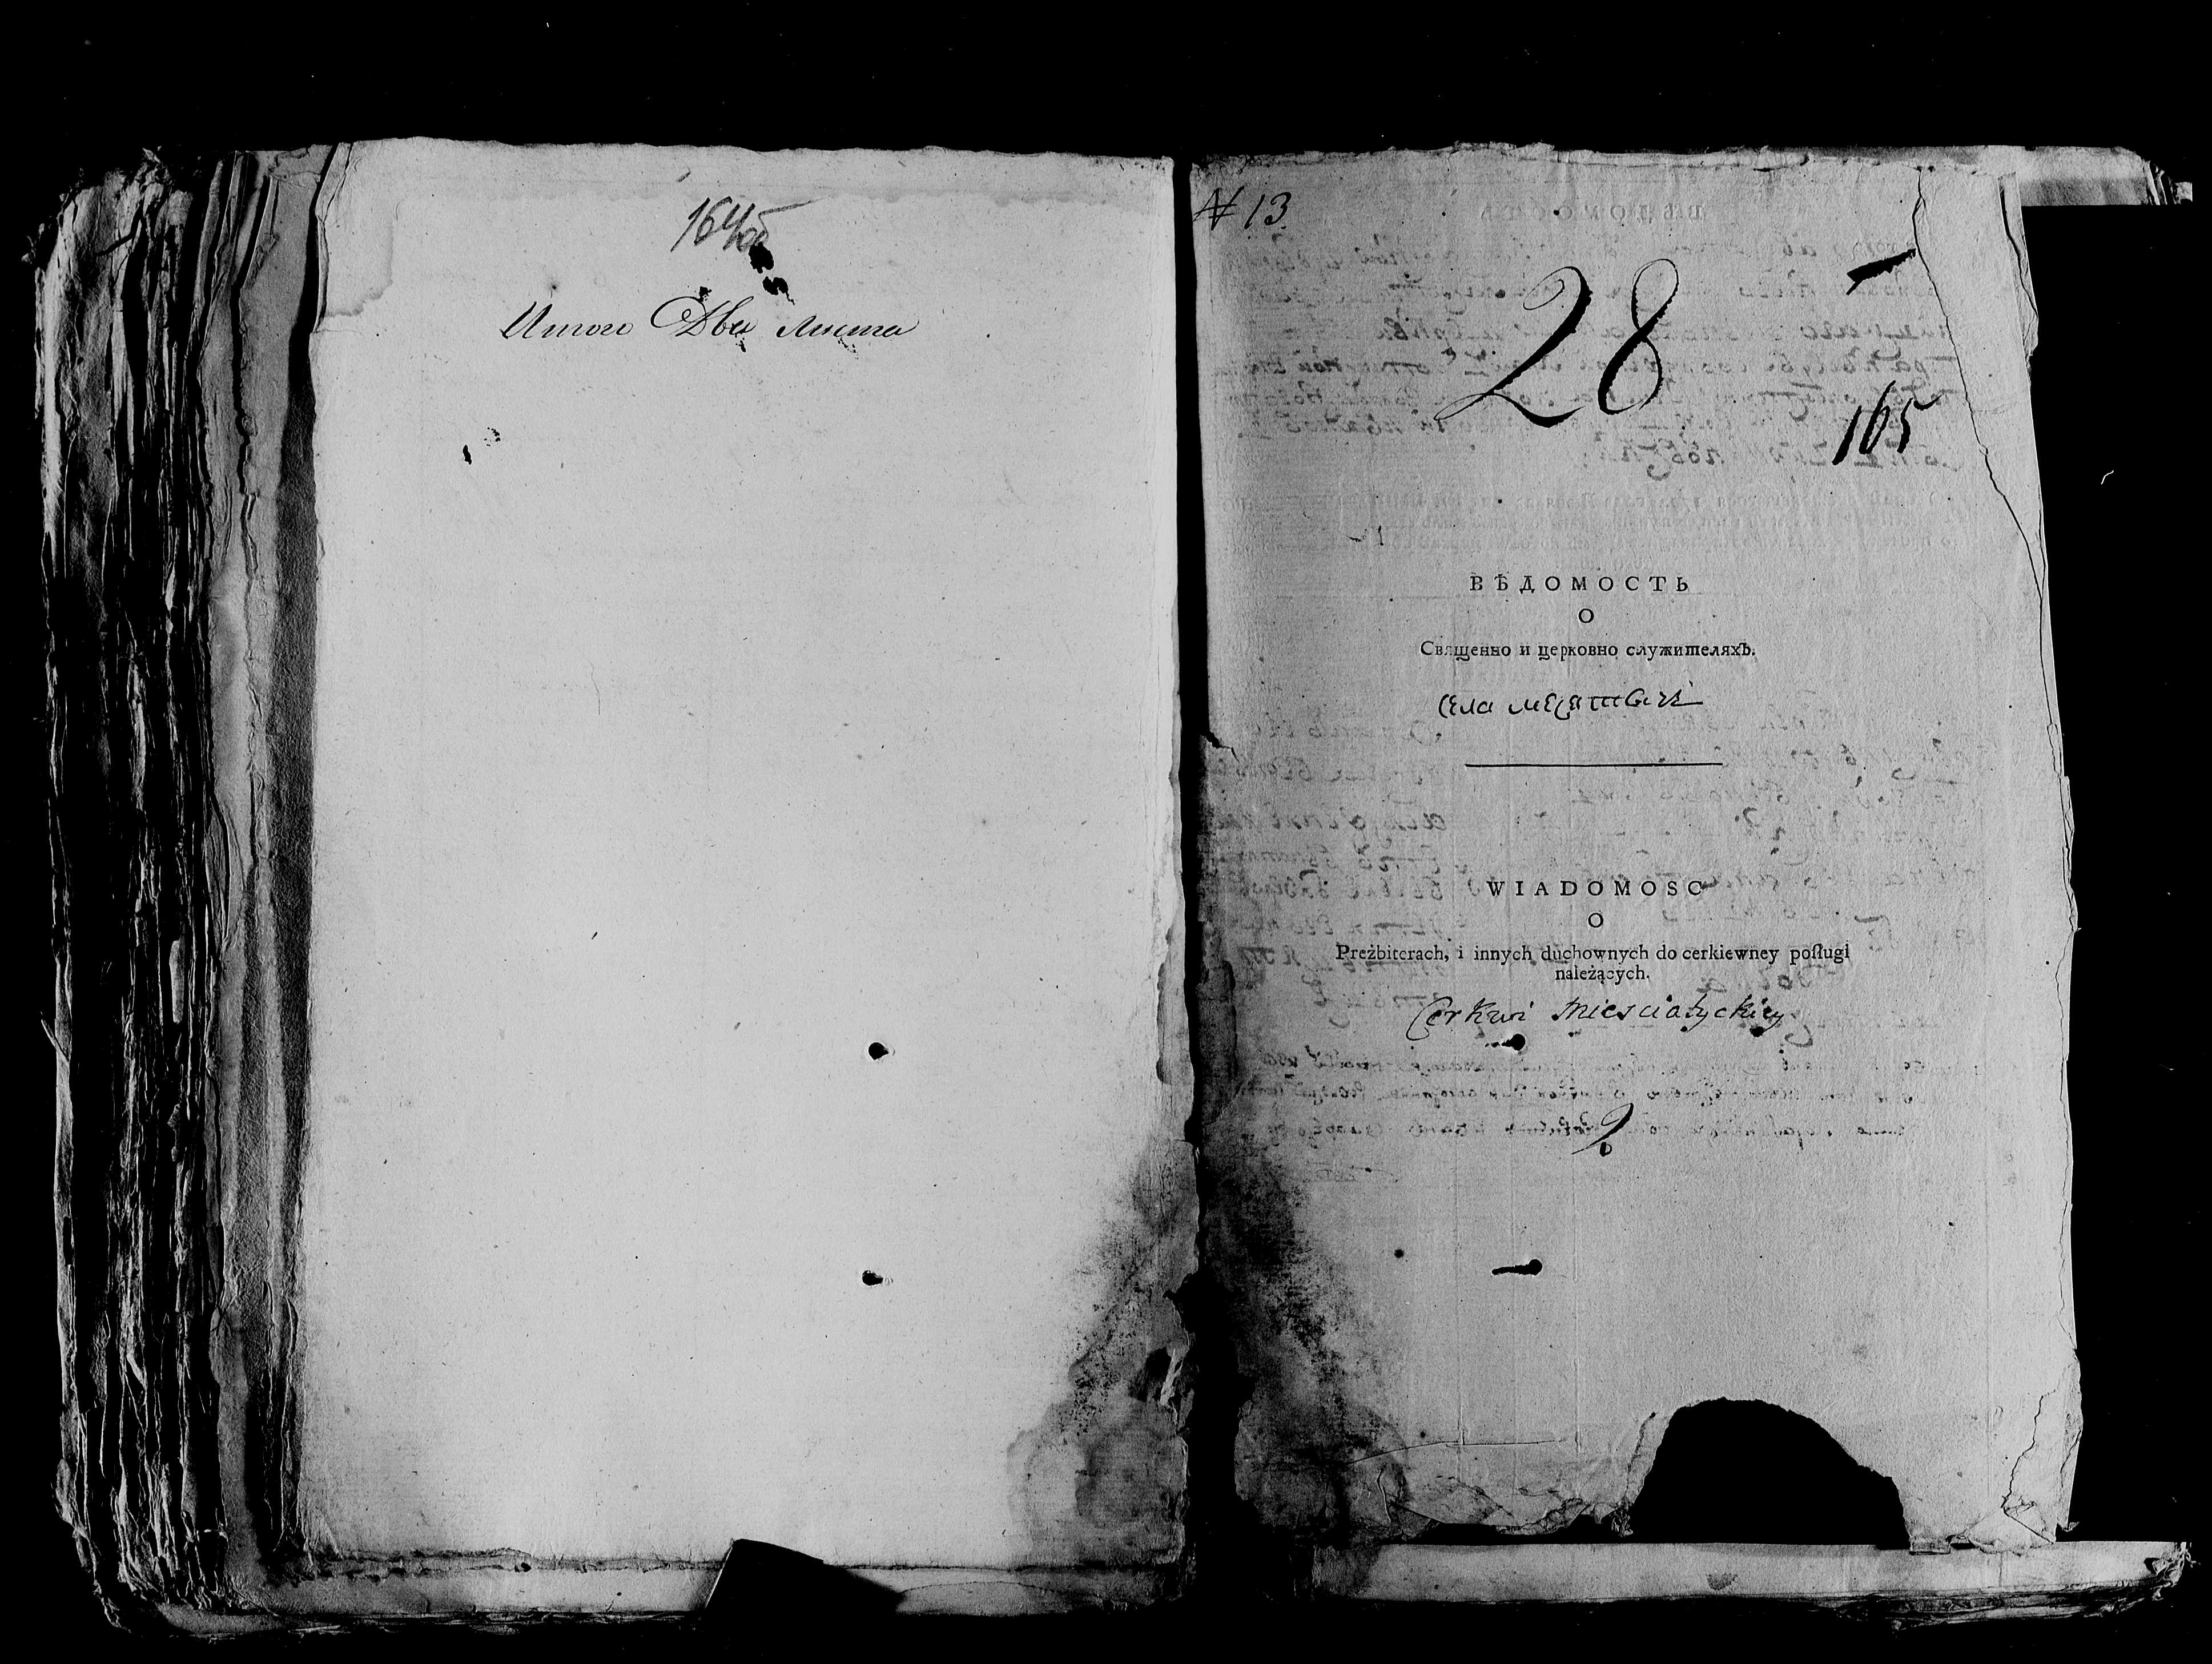 164об
Итого Два листа
N 13
28
165
ВѢДОМОСТЬ
О
Священно и церковно служителяхЪ.
села
WIADOMOSC
O
Preżbiterach, i innych duchownych do cerkiewney poſługi
należących.
Cerkwi Miesciatyckiey